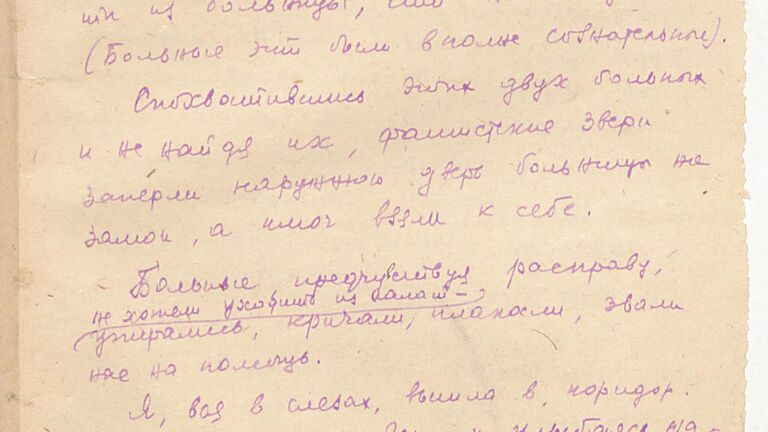 из больницы,
(Больные эти были вполне сознательные).
Спохватившись этих двух больных
и не найдя их, фашистские звери
заперли наружною дверь больницы на
замок, а ключ взяли к себе.
Больные предчувствуя расправу,
не хотели уходить из палат –
упирались, кричали, плакали, звали
нас на помощь.
Я, вся в слезах, вышла в коридор.